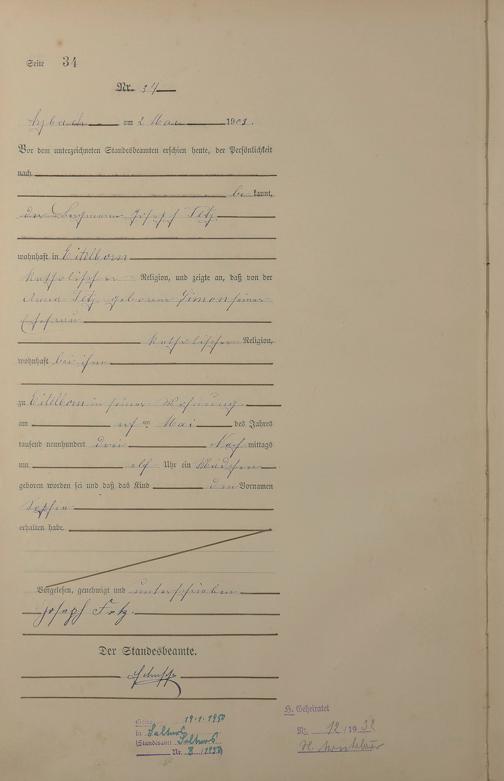 Seite 34
Nr. 34
am 2 Mai 1903.
Vor dem unterzeichneten Standesbeamten erschien heute, der Persönlichkeit
nach
be kannt,
der Bergmann Joseph
wohnhaft in Eitelborn
katholischer Religion, und zeigte an, daß von der
Anna geborene Simon seiner
Ehefrau
katholischer Religion,
wohnhaft bei ihm
zu Eitelborn in seiner Wohnung
am Mai des Jahres
tausend neunhundert drei Nach mittags
um elf Uhr ein Mädchen
geboren worden sei und daß das Kind den Vornamen
Sophia
erhalten habe.
Vorgelesen, genehmigt und unterschrieben
Joseph
Der Standesbeamte.
H. Geheiratet
Nr. 12/19
in
Standesamt
Nr. 8